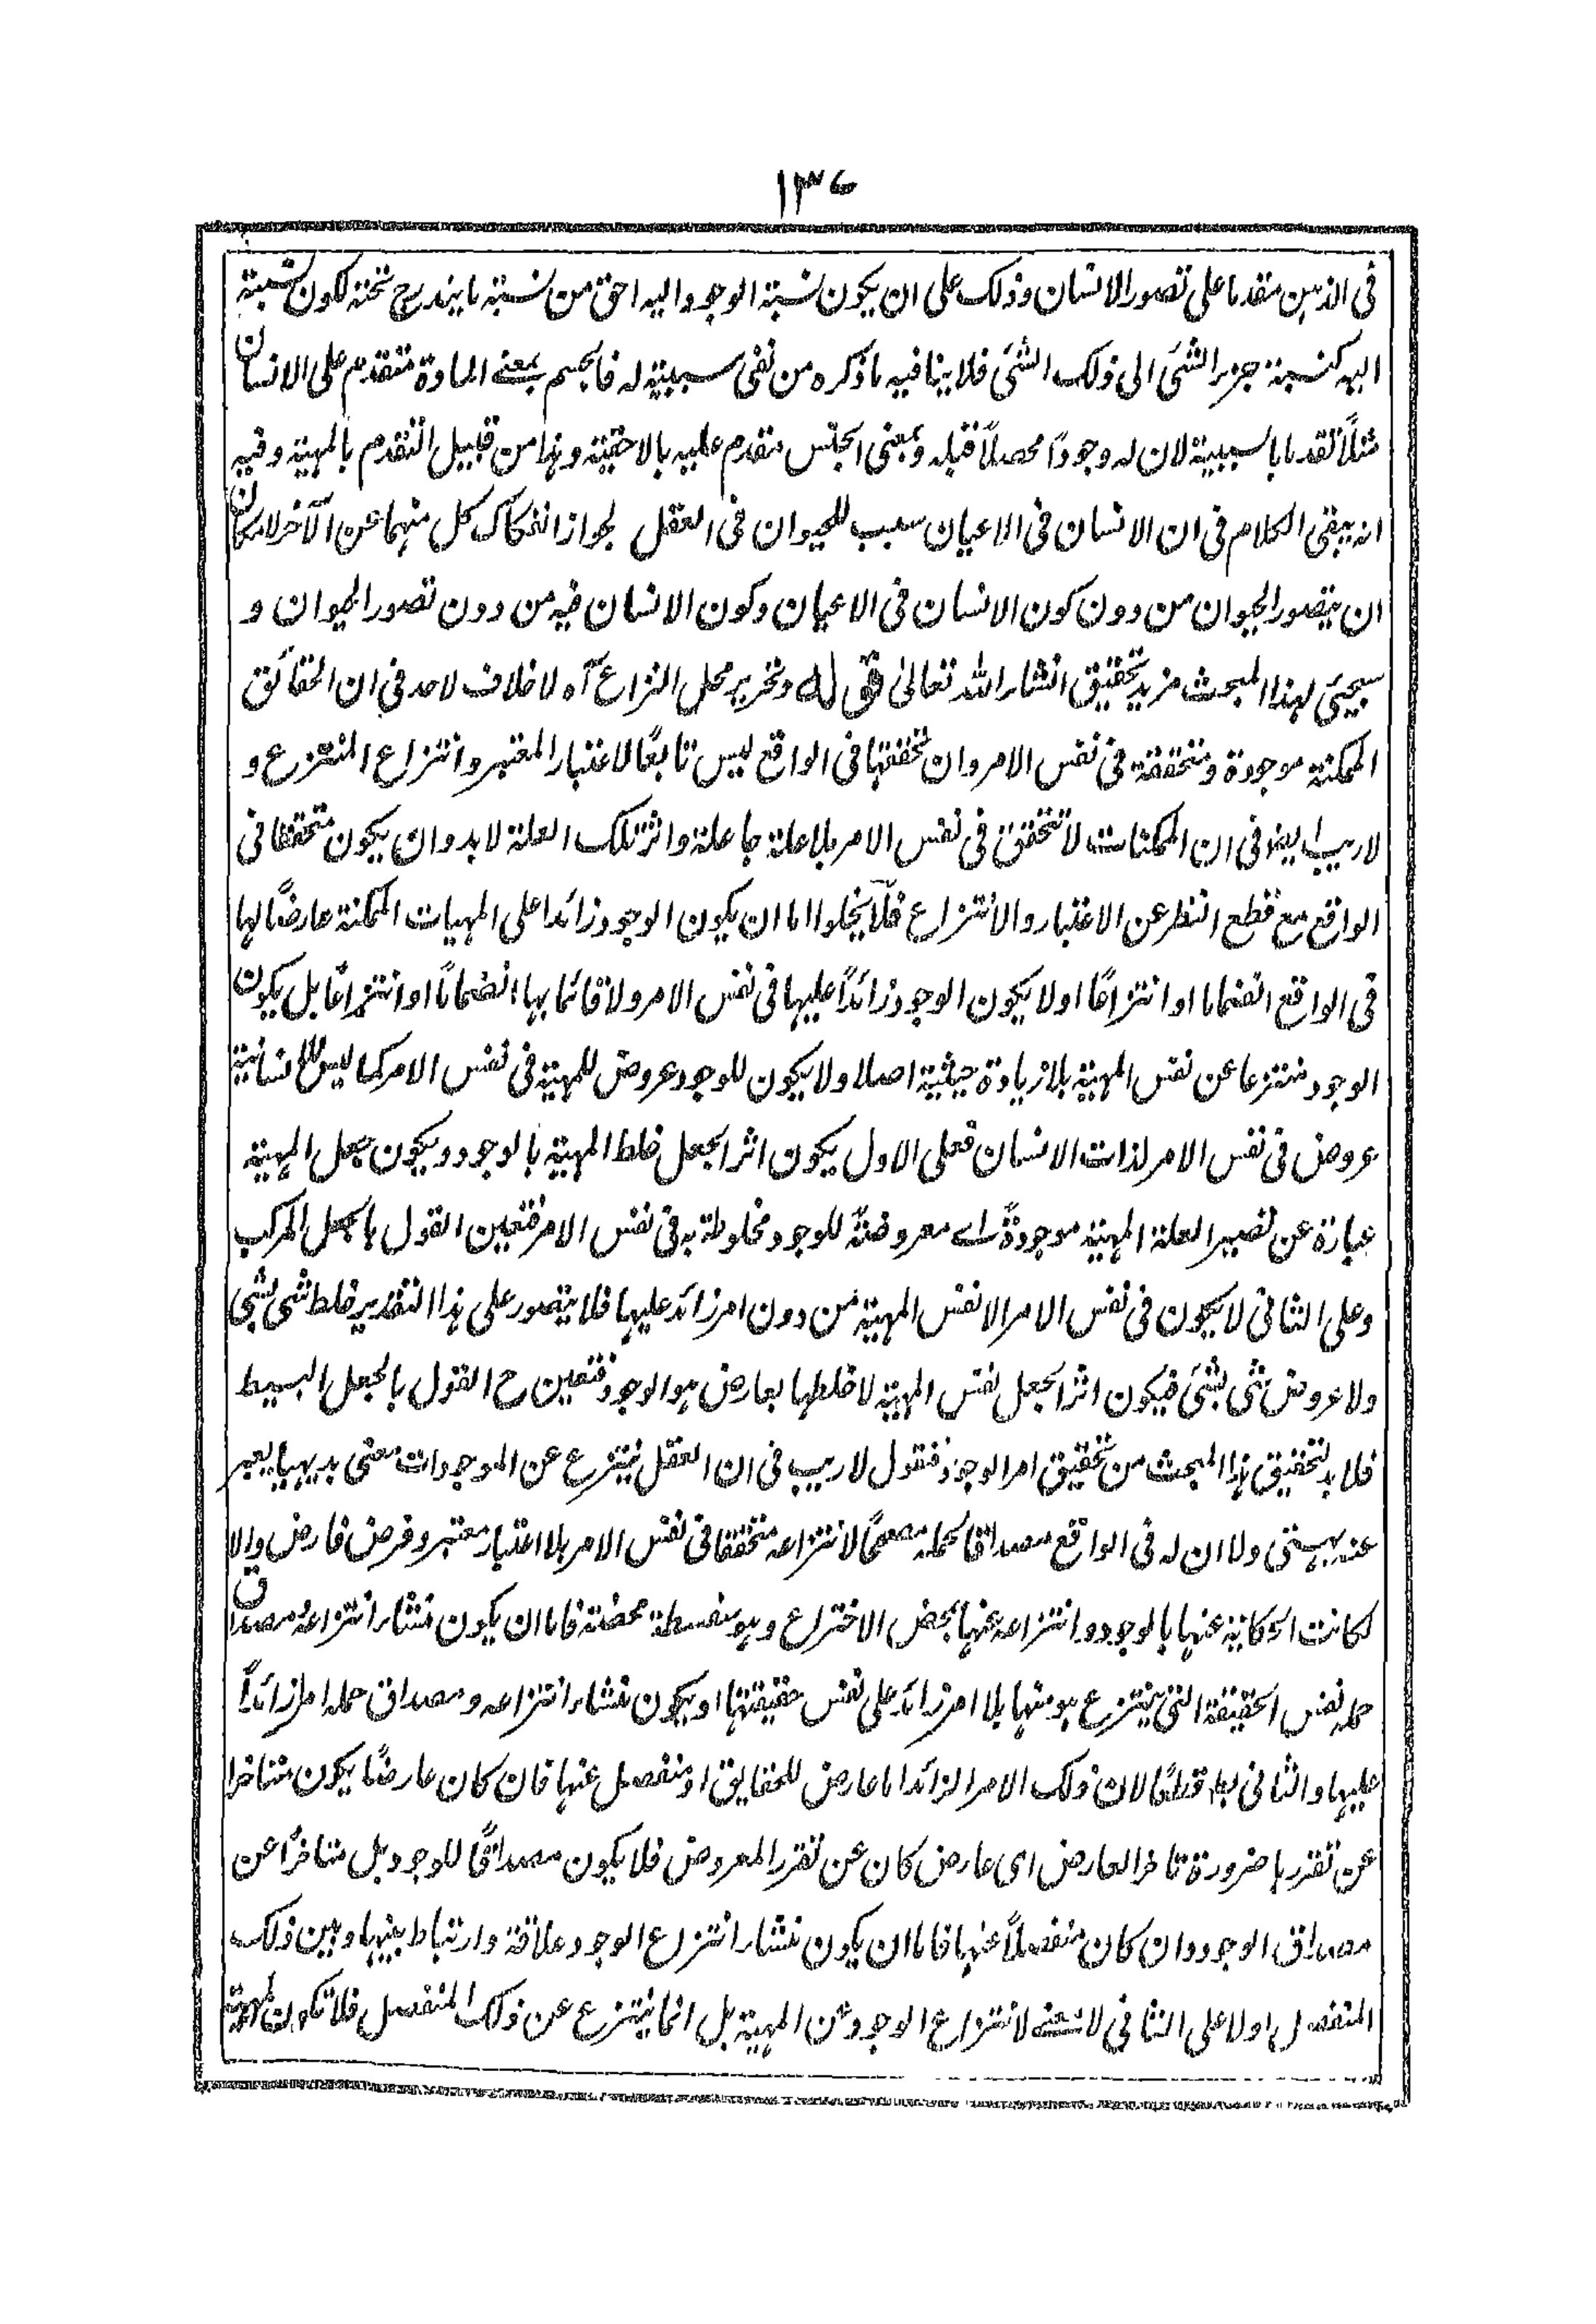 ١٣٦
فى الذهن متقدما على تصور الانسان وذلك على ان يكون نسبة الوجود اليه احق من نسبة ما يندرج تحته لكون نسبة
اليه كنسبة جزء الشئ الى ذلك الشئ فلا ينافيه ما ذكره من نفى سببيته له فالجسم بمعنے المادة متقدم على الانسان
مثلاً تقدما بالسببية لان له وجوداً محصلاً قبله وبمعنى الجنس متقدم عليه بالاحقية وهذا من قبيل التقدم بالمهية وفيه
انه يبقى الكلام فى ان الانسان فى الاعيان سبب للحيوان فى العقل لجواز انفكاك كل منهما عن الآخر لامكان
ان يتصور الحيوان من دون كون الانسان فى الاعيان وكون الانسان فيه من دون تصور الحيوان و
سيجئ لهذا المبحث مزيد تحقيق انشاء الله تعالىٰ قوله وتحرير محل النزاع آه لا خلاف لاحد فى ان الحقائق
الممكنة موجودة ومتحققة فى نفس الامر وان تحققها فى الواقع ليس تابعًا لاعتبار المعتبر وانتزاع المنتزع و
لا ريب ايضا فى ان الممكنات لا تتحقق فى نفس الامر بلا علة جاعلة واثر تلك العلة لا بد وان يكون متحققا فى
الواقع مع قطع النظر عن الاعتبار والانتزاع فلا يخلوا اما ان يكون الوجود زائدا على المهيات الممكنة عارضًا لها
فى الواقع انضماما او انتزاعًا او لا يكون الوجود زائداً عليها فى نفس الامر ولا قائما بها انضمامًا او انتزاعًا بل يكون
الوجود منتزعا عن نفس المهية بلا زيادة حيثية اصلا ولا يكون للوجود عروض للمهية فى نفس الامر كما ليس للانسانية
عروض فى نفس الامر لذات الانسان فعلى الاول يكون اثر الجعل خلط المهية بالوجود ويكون جعل المهية
عبارة عن تصيير العلة المهية موجودةً اے معروضةً للوجود مخلوطة به فى نفس الامر فتعين القول بالجعل المركب
وعلى الثانى لا يكون فى نفس الامر الا نفس المهية من دون امر زائد عليها فلا يتصور على هذا التقدير خلط شى بشى
ولا عروض شى بشئ فيكون اثر الجعل نفس المهية لا خلطها بعارض هو الوجود فتعين ح القول بالجعل البسيط
فلا بد لتحقيق هذا المبحث من تحقيق امر الوجود فنقول لا ريب فى ان العقل ينتزع عن الموجودات معنى بديهيا يعبر
عنه بهستى ولا ان له فى الواقع مصداقا لحمله مصححًا لانتزاعه متحققا فى نفس الامر بلا اعتبار معتبر وفرض فارض والا
لكانت الحكاية عنها بالوجود وانتزاعه عنها بمحض الاختراع وهو سفسطة محضة فاما ان يكون منشاء انتزاعه ومصداق
حمله نفس الحقيقة التى ينتزع هو منها بلا امر زائد على نفس حقيقتها او يكون منشاء انتزاعه ومصداق حمله امرا زائداً
عليها والثانى بط قطعًا لان ذلك الامر الزائد اما عارض للحقايق او منفصل عنها فان كان عارضًا يكون متاخرا
عن تقررها ضرورة تاخر العارض اى عارض كان عن تقرر المعروض فلا يكون مصداقًا للوجود بل متاخرًا عن
مصداق الوجود وان كان منفصلاً عنها فاما ان يكون منشاء انتزاع الوجود علاقة وارتباط بينها وبين ذلك
المنفصل اولا على الثانى لا معنے لانتزاع الوجود عن المهية بل انما ينتزع عن ذلك المنفصل فلا تكون المهية